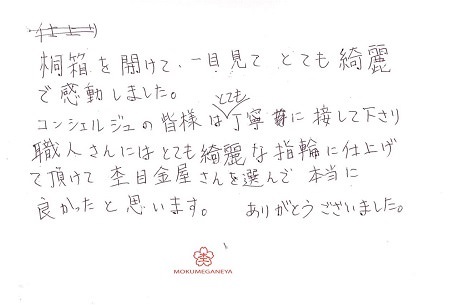 桐箱を開けて、一目見て とても綺麗
で感動しました。
コンシェルジュの皆様はとても丁寧に接して下さり
職人さんにはとても綺麗な指輪に仕上げ
て頂けて 杢目金屋さんを選んで 本当に
良かったと思います。 ありがとうございました。
MOKUMEGANEYA